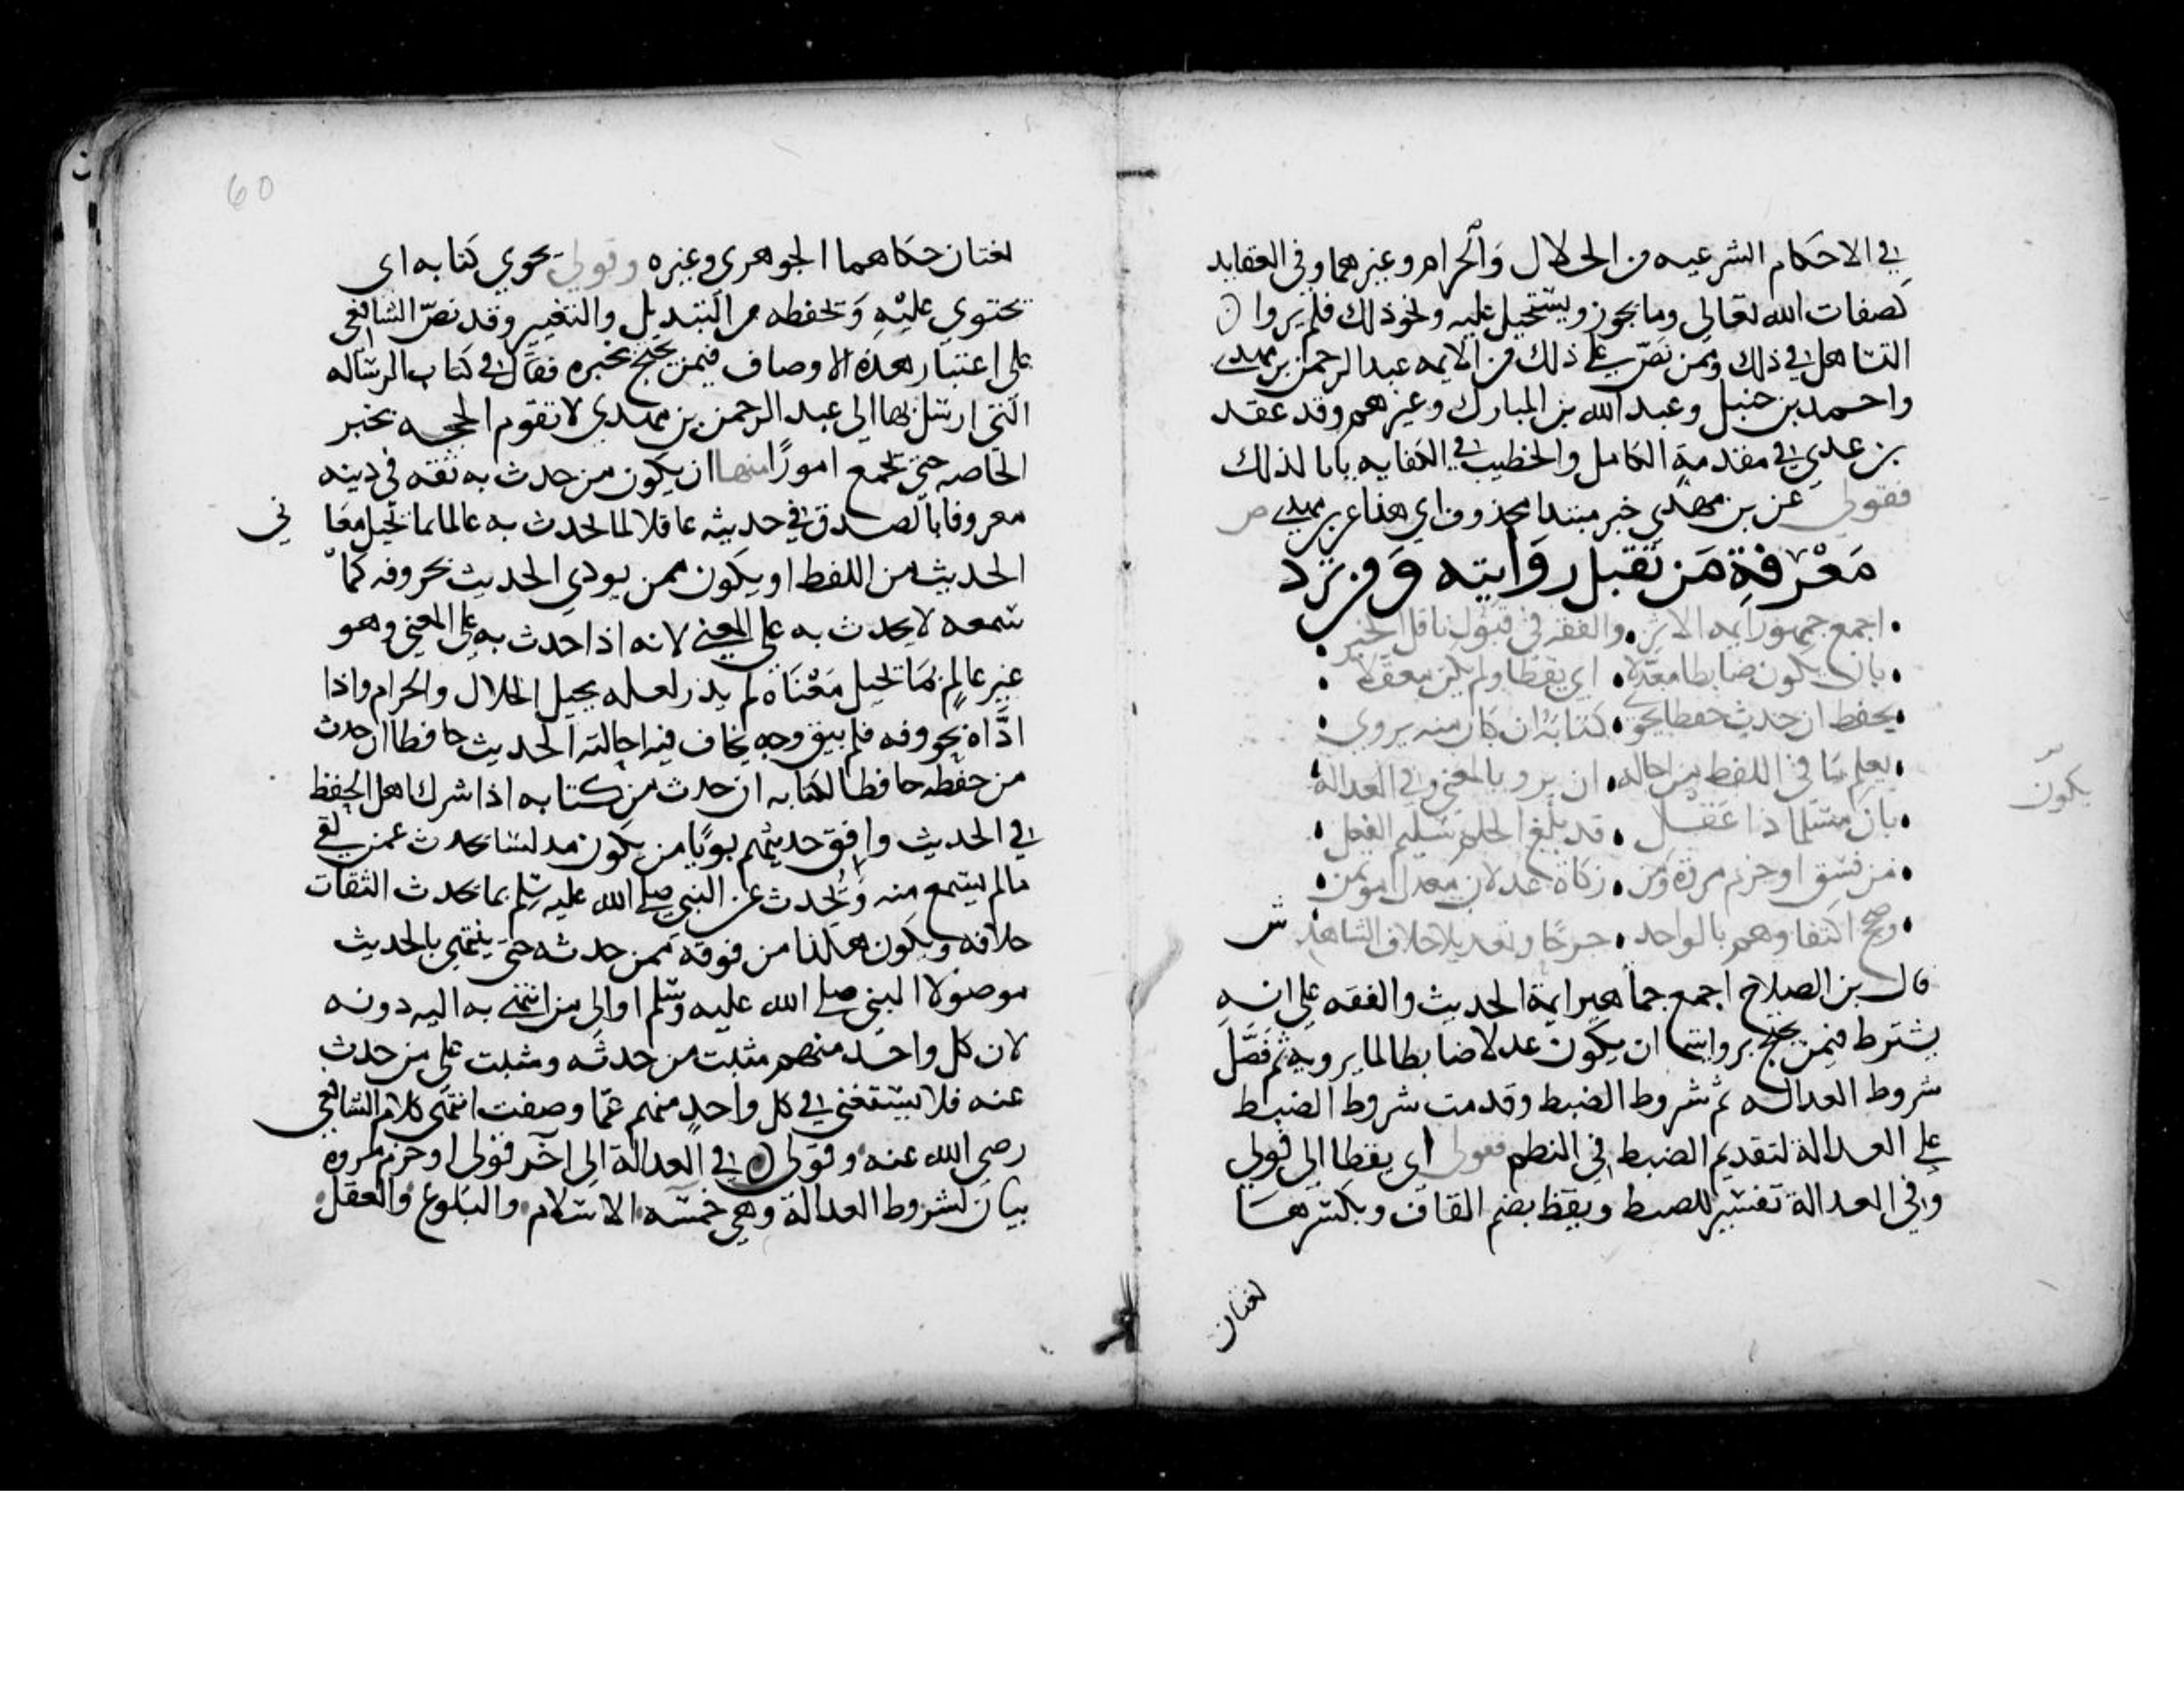 في الاحكام الشرعيه من الحلال والحرام وغيرهما وفي العقايد
كصفات الله تعالى وما يجوز ويستحيل عليه ونحو ذلك فلم يروا
التساهل في ذلك وممن نص على ذلك من الايمه عبد الرحمن بن مهدي
واحمد بن حنبل وعبد الله بن المبارك وغيرهم وقد عقد
بن عدي في مقدمة الكامل والخطيب في الكفايه بابا لذلك
فقولي عن بن مهدي خبر مبتدا محذوف اي هذا عن بن مهدي ص
مَعْرفةِ مَن تُقبل روَايته وَمن تُرَد
اجمع جمهور ايمه الاثر • والفقه في قبول ناقل الخبر
بان يكون ضابطا معدلا • اي يقظا ولم يكن مغفلا
يحفظ ان حدث حفظا يحوي • كتابه ان كان منه يروي
يعلم ما في اللفظ من احاله • ان يرو بالمعنى وفي العدالة
يكون
بان مسلما ذا عقل • قد بلغ الحلم سليم الفعل
من فسق او خرم مروة ومن • زكاه عدلان معدل مؤتمن
وصح اكتفاوهم بالواحد • جرحا وتعديلا خلاف الشاهد ش
قال بن الصلاح اجمع جماهير ايمة الحديث والفقه على انه
يشترط فيمن يحتج بروايته ان يكون عدلا ضابطا لما يرويه ثم فصَّل
شروط العداله ثم شروط الضبط وقدمت شروط الضبط
على العدالة لتقديم الضبط في النظم فقولي اي يقظا الى قولي
وفي العدالة تفسير للضبط ويقظ بضم القاف وبكسرها
لغتان
60
لغتان حكاهما الجوهري وغيره وقولي يحوي كتابه اي
يحتوي عليه ويحفظه من التبديل والتغيير وقد نص الشافعي
على اعتبار هذه الاوصاف فيمن يحتج بخبره فقال في كتاب الرساله
التي ارسل بها الى عبد الرحمن بن مهدي لا تقوم الحجه بخبر
الخاصه حتى يجمع امورًا منها ان يكون من حدث به ثقه في دينه
معروفا بالصدق في حديثه عاقلا لما يحدث به عالما بما يحيل معا
ني
الحديث من اللفظ او يكون ممن يودي الحديث بحروفه كما
سمعه لا يحدث به على المعنى لانه اذا حدث به على المعنى وهو
غير عالم بما يحيل معناه لم يدر لعله يحيل الحلال والحرام واذا
ادَّاه بحروفه فلم يبق وجه يخاف فيه احالته الحديث حافظا ان حدث
من حفظه حافظا لكتابه ان حدث من كتابه اذا شرك اهل الحفظ
في الحديث وافق حديثهم بريًا من يكون مدلسا يحدث عمن لقي
مالم يسمع منه ويُحدث عن النبي صلى الله عليه وسلم بما يحدث الثقات
خلافه ويكون هكذا من فوقه ممن حدثه حتى ينتهي بالحديث
موصولا الى النبي صلى الله عليه وسلم او الى من انتهى به اليه دونه
لان كل واحد منهم مثبت من حدثه ومثبت على من حدث
عنه فلا يستغنى في كل واحدٍ منهم عمّا وصفت انتهى كلام الشافعي
رضي الله عنه وقولي في العدالة الى آخر قولي او خرم مروه
بيان لشروط العدالة وهي خمسه الاسلام والبلوغ والعقل